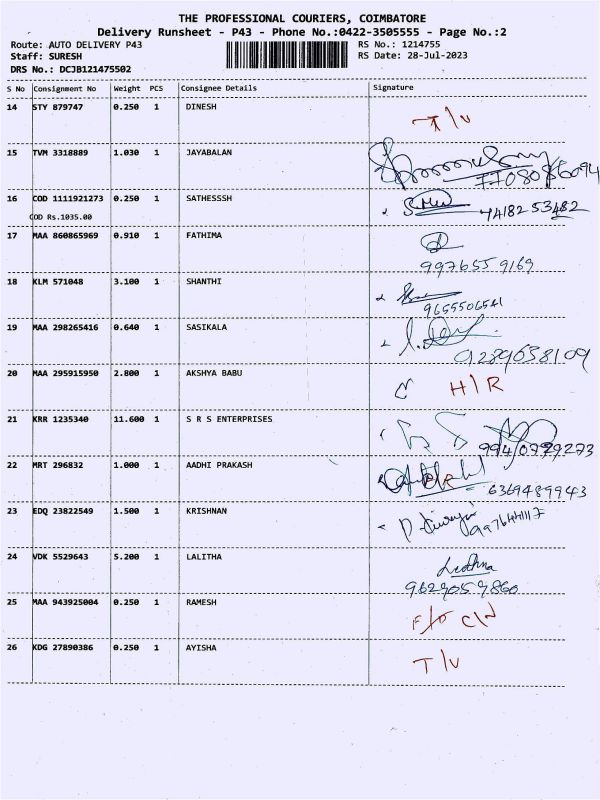 THE PROFESSIONAL COURIERS, COIMBATORE
Delivery Runsheet - P43 - Phone No.:0422-3505555 - Page No.:2
Route: AUTO DELIVERY P43 RS No.: 1214755
Staff: SURESH RS Date: 28-Jul-2023
DRS No.: DCJB121475502
S No Consignment No Weight PCS Consignee Details Signature
14 STY 879747 0.250 1 DINESH T/V
15 TVM 3318889 1.030 1 JAYABALAN
16 COD 1111921273 0.250 1 SATHESSSH
COD Rs.1035.00
17 MAA 860865969 0.910 1 FATHIMA
9976559169
18 KLM 571048 3.100 1 SHANTHI
9655506541
19 MAA 298265416 0.640 1 SASIKALA
20 MAA 295915950 2.800 1 AKSHYA BABU H/R
21 KRR 1235340 11.600 1 S R S ENTERPRISES
22 MRT 296832 1.000 1 AADHI PRAKASH
6369489943
23 EDQ 23822549 1.500 1 KRISHNAN
24 VDK 5529643 5.200 1 LALITHA
9629059860
25 MAA 943925004 0.250 1 RAMESH
26 KDG 27890386 0.250 1 AYISHA T/V